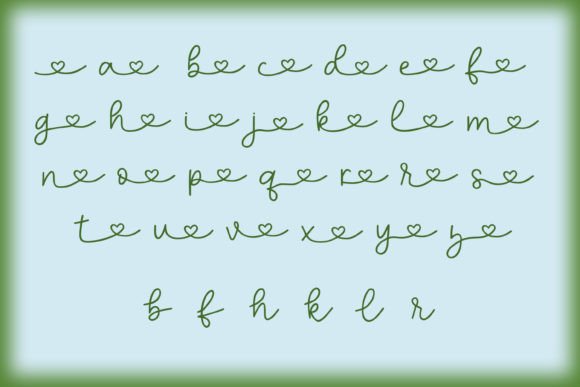 a b c d e f
g h i j k l m
n o p q r r s
t u v x y z
b f h k l r